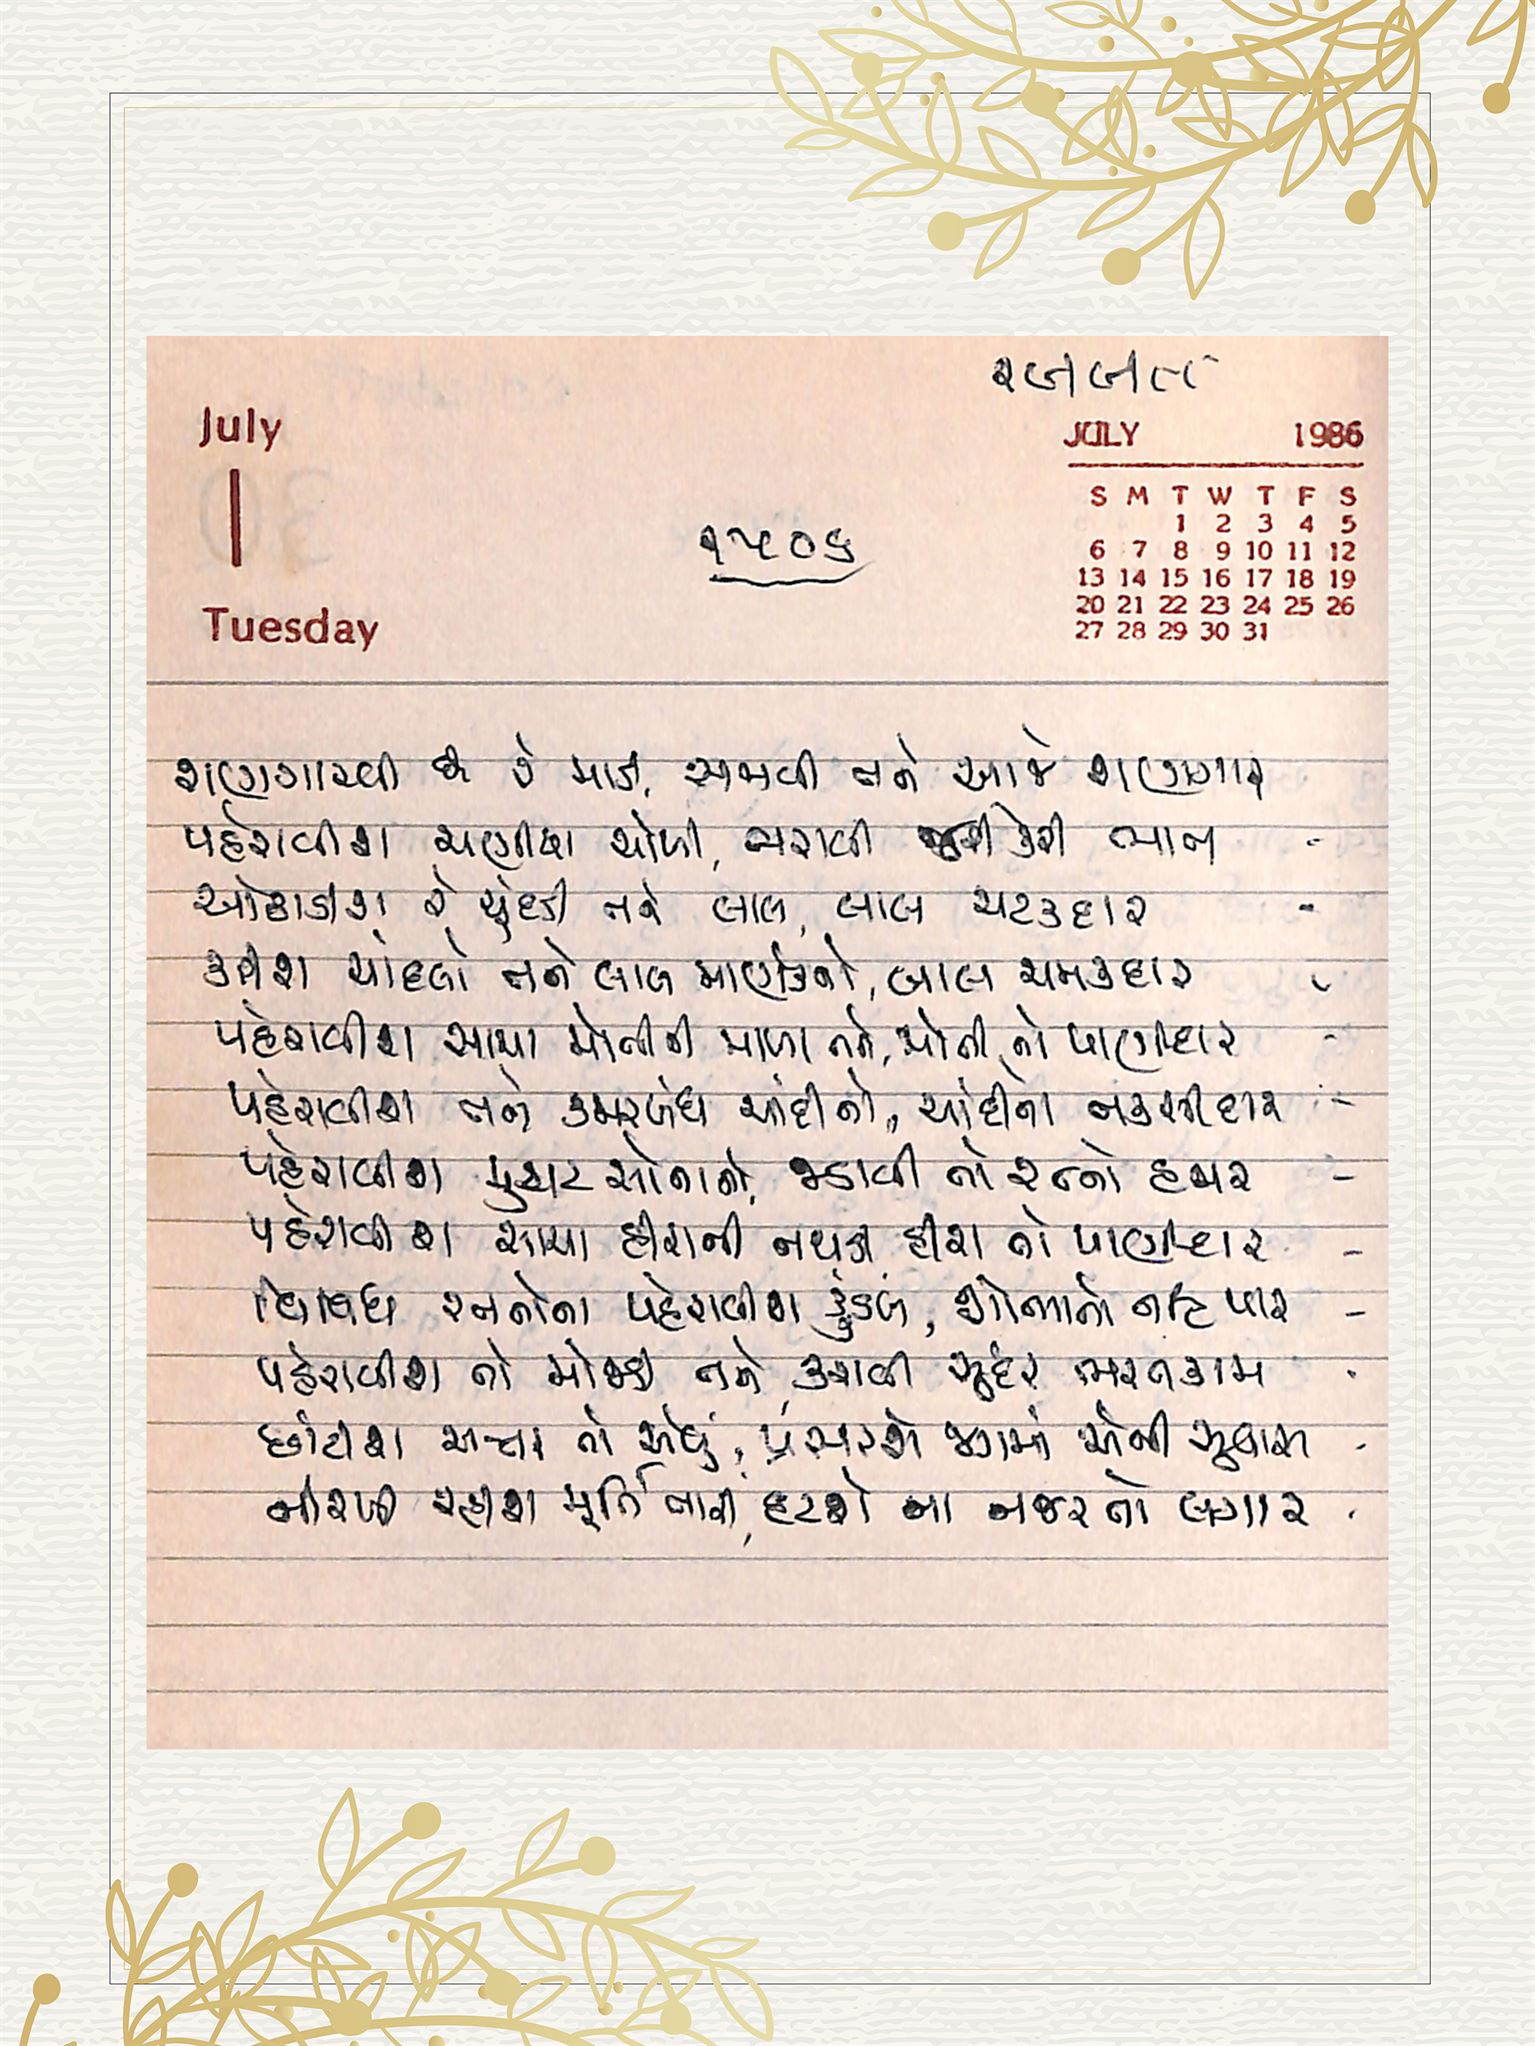 July
1
Tuesday
JULY 1986
S M T W T F S
1 2 3 4 5
6 7 8 9 10 11 12
13 14 15 16 17 18 19
20 21 22 23 24 25 26
27 28 29 30 31
૧૫૦૬
શણગારવી છે રે માડી, સજાવી તને આજે શણગાર
પહેરાવીશ ચણીયા ચોળી, ભરાવી જરી કેરી ભાત -
ઓઢાડીશ રે ચુંદડી તને લાલ, લાલ ચટકદાર -
કરીશ ચાંદલો તને લાલ માણેકનો, લાલ ચમકદાર -
પહેરાવીશ સાચા મોતીની માળા તને, મોતી તો પાણીદાર -
પહેરાવીશ તને કમરબંધ ચાંદીનો, ચાંદીનો નકશીદાર -
પહેરાવીશ મુગટ સોનાનો, જડાવી તો રત્નો હજાર -
પહેરાવીશ સાચા હીરાની નથડી હીરા તો પાણીદાર -
વિવિધ રત્નોના પહેરાવીશ કુંડળ, શોભાનો નહિ પાર -
પહેરાવીશ તો મોજડી તને, કરાવી સુંદર ભરતકામ -
છાંટીશ અત્તર તો એવું, પ્રસરશે જગમાં એની સુવાસ -
નીરખી રહીશ મૂર્તિ તારી, હટશે ના નજર તો લગાર -